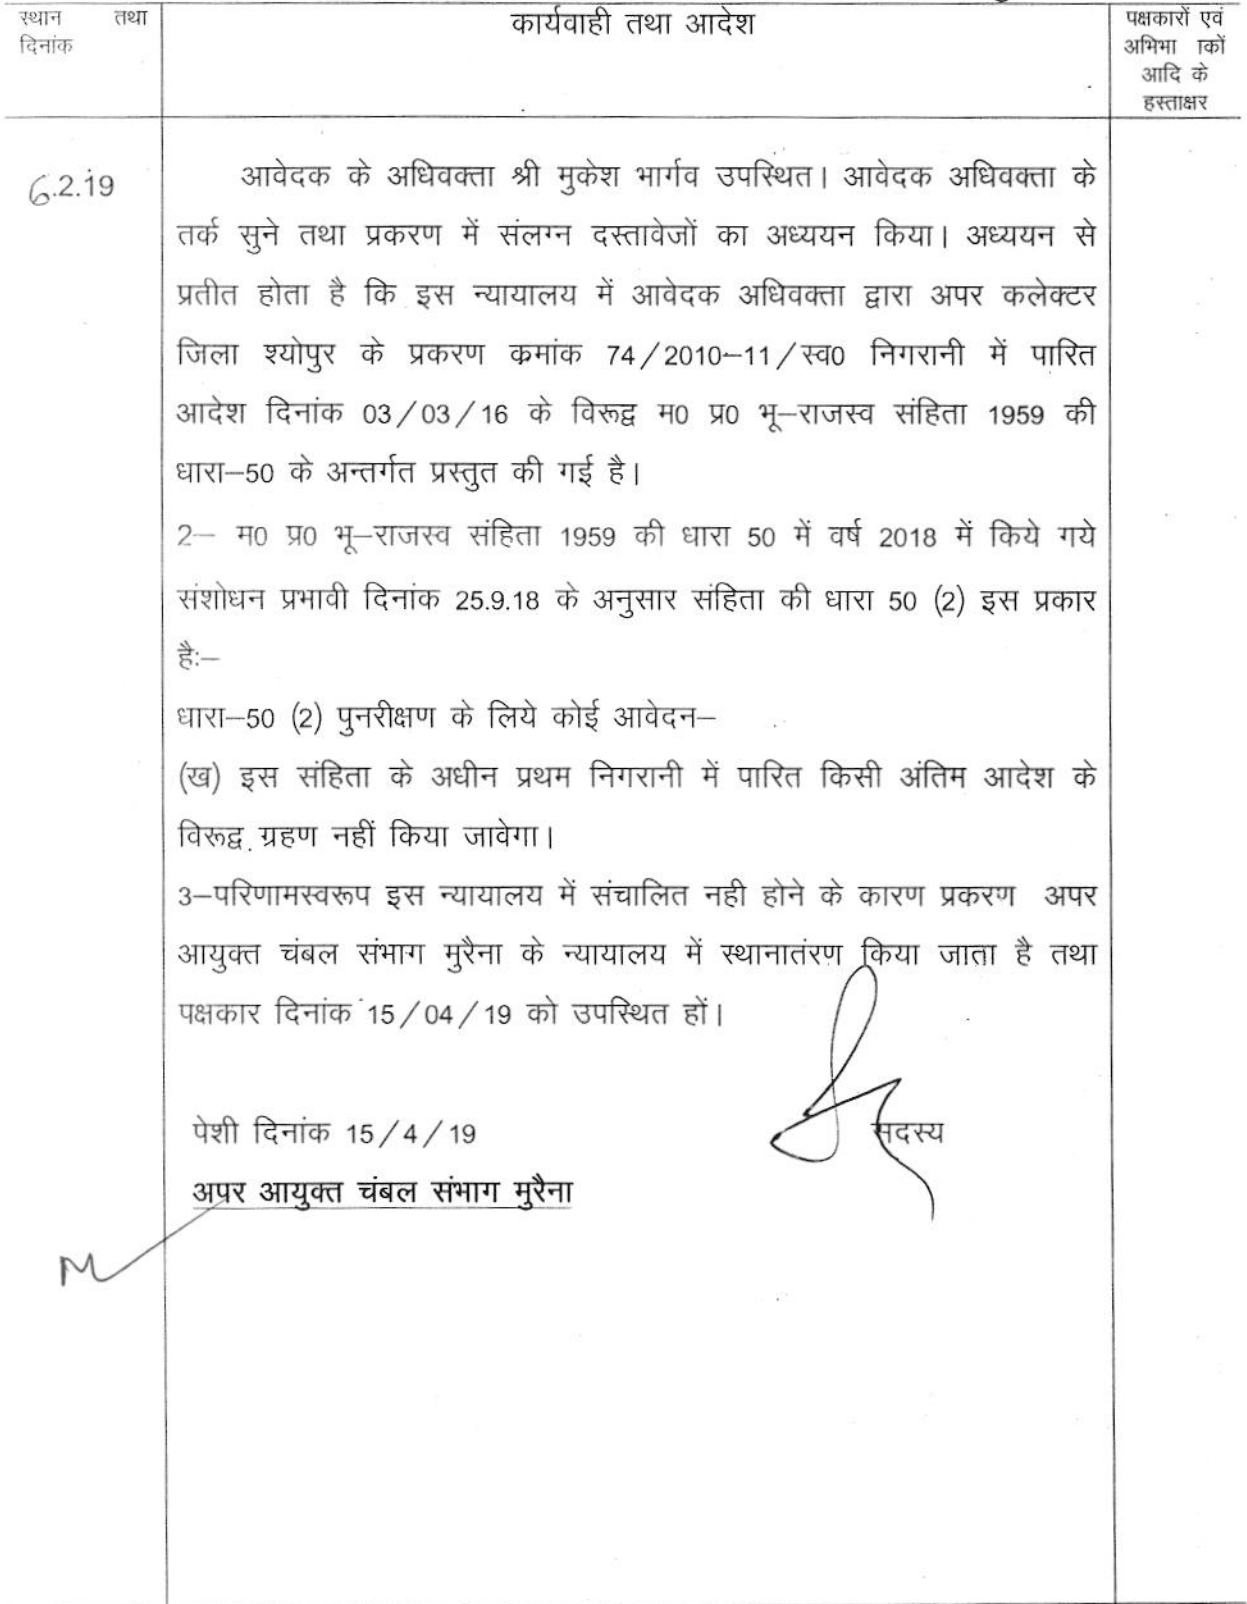 स्थान तथा
दिनांक
कार्यवाही तथा आदेश
पक्षकारों एवं
अभिभा कों
आदि के
हस्ताक्षर
6.2.19
आवेदक के अधिवक्ता श्री मुकेश भार्गव उपस्थित। आवेदक अधिवक्ता के
तर्क सुने तथा प्रकरण में संलग्न दस्तावेजों का अध्ययन किया। अध्ययन से
प्रतीत होता है कि इस न्यायालय में आवेदक अधिवक्ता द्वारा अपर कलेक्टर
जिला श्योपुर के प्रकरण कमांक 74/2010-11/स्व0 निगरानी में पारित
आदेश दिनांक 03/03/16 के विरूद्व म0 प्र0 भू-राजस्व संहिता 1959 की
धारा-50 के अन्तर्गत प्रस्तुत की गई है।
2- म0 प्र0 भू-राजस्व संहिता 1959 की धारा 50 में वर्ष 2018 में किये गये
संशोधन प्रभावी दिनांक 25.9.18 के अनुसार संहिता की धारा 50 (2) इस प्रकार
है:-
धारा-50 (2) पुनरीक्षण के लिये कोई आवेदन-
(ख) इस संहिता के अधीन प्रथम निगरानी में पारित किसी अंतिम आदेश के
विरूद्व ग्रहण नहीं किया जावेगा।
3-परिणामस्वरूप इस न्यायालय में संचालित नही होने के कारण प्रकरण अपर
आयुक्त चंबल संभाग मुरैना के न्यायालय में स्थानातंरण किया जाता है तथा
पक्षकार दिनांक 15/04/19 को उपस्थित हों।
पेशी दिनांक 15/4/19
सदस्य
अपर आयुक्त चंबल संभाग मुरैना